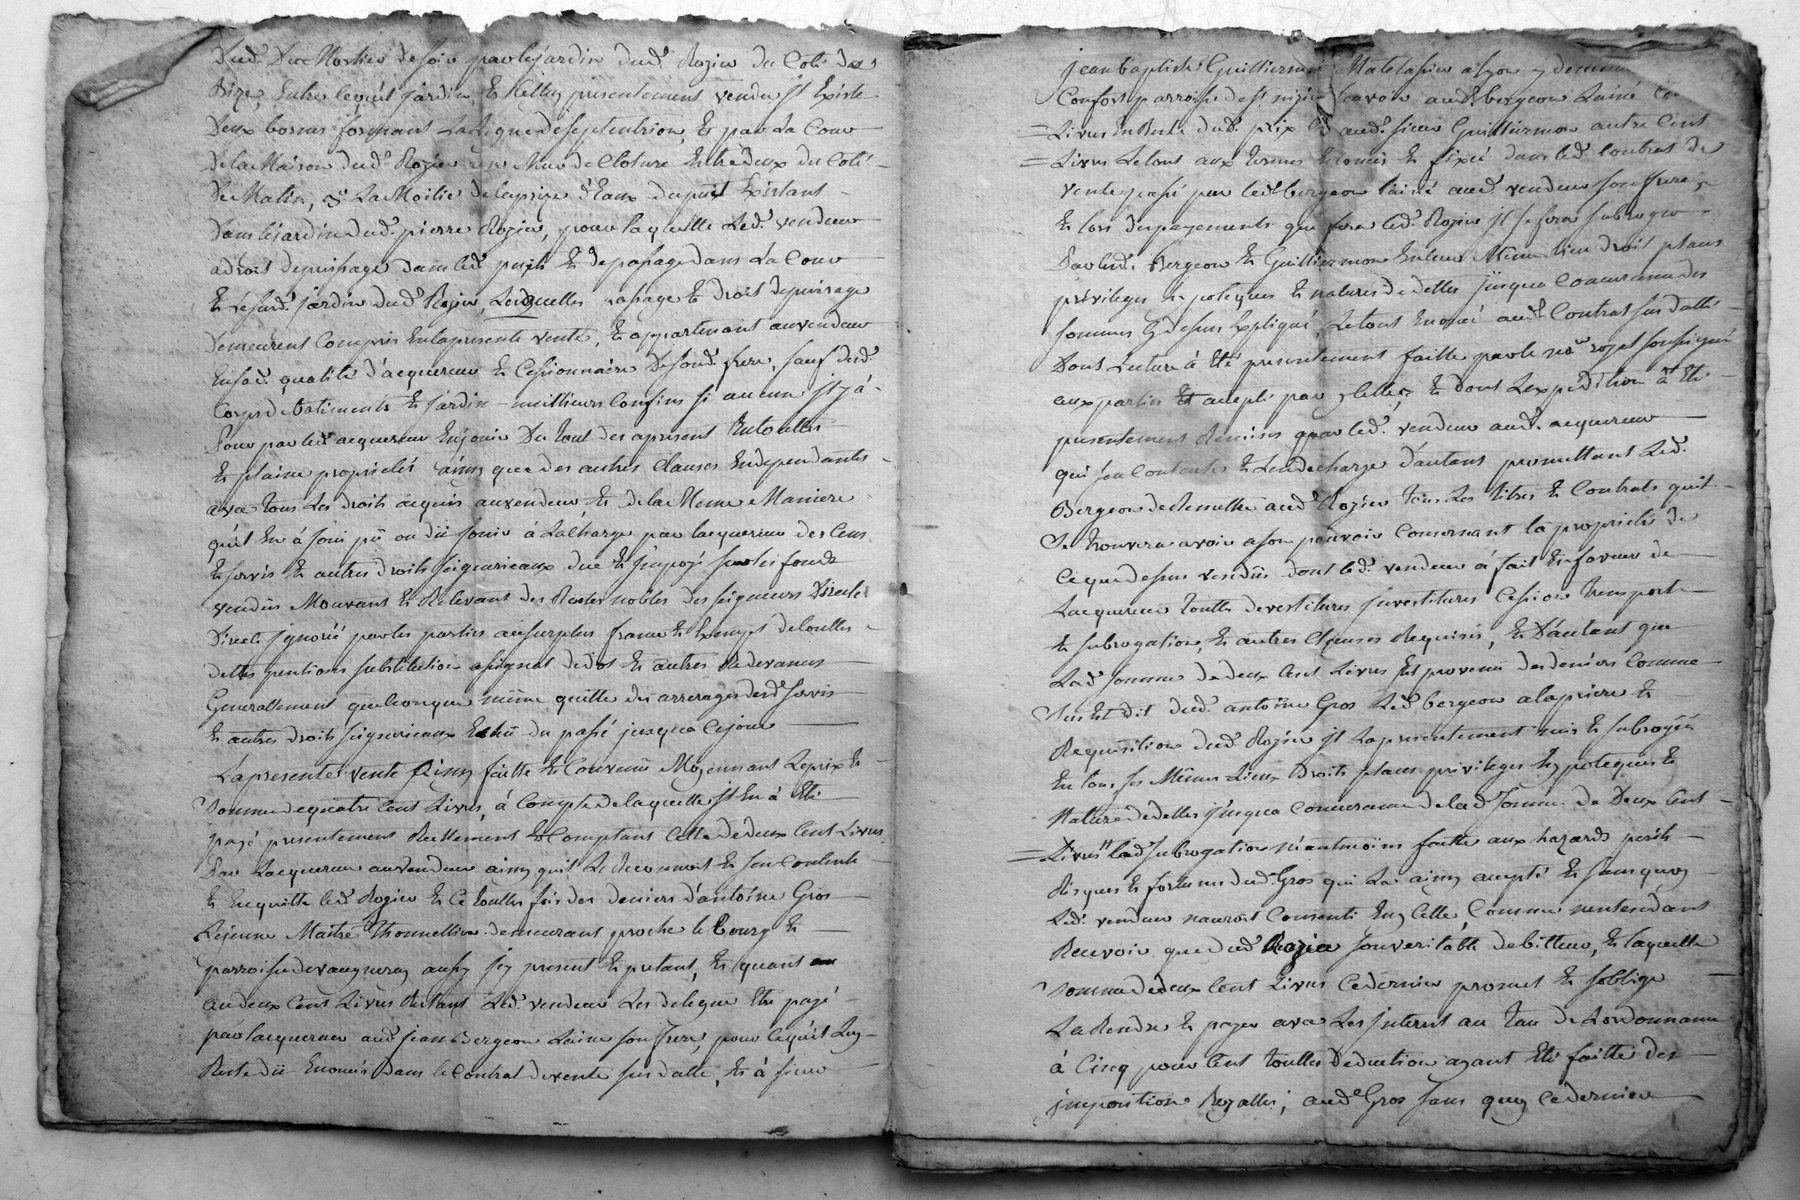 Dud. Du Mortier de soir par le jardin dud. Rozier du Coté de
Bize, Entre lequel jardin Et Celluy presentement vendu jl Existe
Deux bornes formant La Ligne de septentrion, Et par La Cour
de la Maison dud. Rozier un Mur de Cloture Entre deux du Coté
De Matin, & La Moitié de la prize d'Eaux du puit Existant
Dans le jardin dud. pierre Rozier, pour laquelle Led. vendeur
a droit de puisage dans led. puit Et de passage dans La Cour
Et jardin dud. Rozier, Lesquelles passage Et droit de puisage
Demeurent Compris En la presente vente, Et appartenant au vendeur
En sad. qualité d'acquereur Et Cessionnaire De sond. frere, sauf desd.
Corps de batiments Et jardin meilleurs Confins si aucun jl y à
Pour par led. acquereur En jouir Du tout des apresent En toutte
Et plaine proprieté ainsy que des autres Clauses Independantes
avec tous Les droits acquis au vendeur, Et de la Meme Maniere
qu'il En à joui pû ou dû jouir à La Charge par lacquereur des Cens
Et servis Et autres droits seigneuriaux due Et jmposé sur les fonds
vendûs Mouvant Et Relevant des Rentes nobles des seigneurs Directs
Directe jgnorée par les parties au surplus franc Et Exempt de touttes
dettes pentions substitution assignat de dot Et autres Redevances
Generallement quelconque même quitte des arrerages desd. servis
Et autres droits seigneuriaux Echû du passé jusqua Ce jour
La presente vente Ainsy faitte Et Convenû Moyennant Le prix Et
Somme de quatre Cent Livres, à Compte de laquelle jl En à Eté
payé presentement Reellement Et Comptant Celle de deux Cent Livres
Par Lacquereur au vendeur ainsy quil Le Reconnoit Et sen Contente
Et En quitte led. Rozier Et Ce touttes fois des deniers d'antoine Gros
Le jeune Maitre Thonnellier demeurant proche le Bourg Et
parroisse de vaugneray aussy jcy present Et pretant, Et quant
aux deux Cent Livres Restant Led. vendeur Les delegue Etre payé
par lacquereur aud. jean Bergeon Lainé son frere, pour Ce qu'il Luy
Reste dû Enoncés Dans le Contrat de vente sus datté, Et à sieur
jean baptiste Guilliermon Matelassier a Lyon y demeurant
Confort parroisse de st nizier scavoir aud. bergeon Lainé Cent
Livres En Reste dud. prix Et aud. sieur Guilliermon autre Cent
Livres Le tout aux termes Enoncés Et fixés dans led. Contrat de
vente passé par led. bergeon lainé aud. vendeur son frere,
Et lors des payements que fera led. Rozier jl se fera subroger
Par lesd. Bergeon Et Guilliermon En leur Meme Lieu droit places
privileges hypoteques Et natures de dettes jusqua Concurrance des
sommes Cy dessus Expliqué, Le tout Enoncé aud. Contrat sus datté
Dont Lecture à Eté presentement faitte par le no.re royal soussigné
aux parties Et accepté par Elles, Et dont Lexpedition à Eté
presentement Remises par led. vendeur aud. acquereur
qui sen Contente Et Len decharge D'autant promettant Led.
Bergeon de Remettre aud. Rozier tous Les titres Et Contrats quil
Se trouvera avoir a son pouvoir Concernant la proprieté de
Ce que dessus vendûs dont led. vendeur à fait En faveur de
Lacquereur touttes devestitures jnvestitures Cession transport
Et subrogation, Et autres Clauses Requises, Et D'autant que
Lad. somme de deux Cent Livres Est provenû des deniers Comme
Sus Est dit dud. antoine Gros Led. bergeon a la priere Et
Requisition dud. Rozier jl La presentement mis Et subrogé
En tous ses Mêmes Lieux Droits places privileges hypoteques Et
Nature de dettes jusqua Concurrance de lad. somme de Deux Cent
Livres lad. subrogation néantmoins faitte aux hazards perils
Risques Et fortunes dud. Gros qui La ainsy accepté Et sans quoy
Led. vendeur nauroit Consenti En Celle, Comme nentendant
Recevoir que dud. Rozier son veritable debitteur, Et laquelle
Somme de deux Cent Livres Ce dernier promet Et soblige
La Rendre Et payer avec Les jnterest au Taux de Lordonnance
à Cinq pour Cent touttes Deduction ayant Eté faitte des
jmposition Royalles; aud. Gros sans quoy Ce dernier